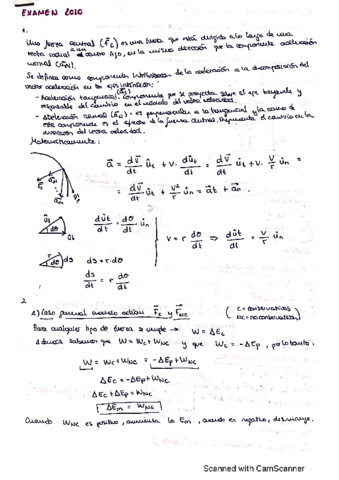 EXAMEN 2010
1.
Una fuerza central (F⃗c) es una fuerza que está dirigida a lo largo de una
recta radial a un centro fijo, en la misma dirección que la componente aceleración
normal (a⃗N).
Se definen como componentes intrínsecas de la aceleración a la descomposición del
vector aceleración en dos ejes intrínsecos:
- Aceleración tangencial (a⃗t): componente que se proyecta sobre el eje tangente y
responsable del cambio en el módulo del vector velocidad.
- Aceleración normal (a⃗N): es perpendicular a la tangencial y la causa de
esta componente es el efecto de la fuerza central. Representa el cambio en la
dirección del vector velocidad.
Matemáticamente:
a⃗ = dv⃗/dt û_t + v · dû_t/dt = dv⃗/dt û_t + v · v/r û_n =
= dv⃗/dt û_t + v²/r û_n = a⃗t + a⃗n.
dû_t/dt = dθ/dt û_n
v = r dθ/dt ⇒ dû_t/dt = v/r û_n
ds = r·dθ
ds/dt = r dθ/dt
2.
A) Caso general cuando actúan F⃗c y F⃗NC (c = conservativas
NC = no conservativas)
Para cualquier tipo de fuerza se cumple → W = ΔEc
Además sabemos que W = Wc + WNC y que Wc = -ΔEp, por lo tanto:
W = Wc + WNC = -ΔEp + WNC
ΔEc = -ΔEp + WNC
ΔEc + ΔEp = WNC
ΔEm = WNC
Cuando WNC es positivo, aumenta la Em, cuando es negativo, disminuye.
Scanned with CamScanner